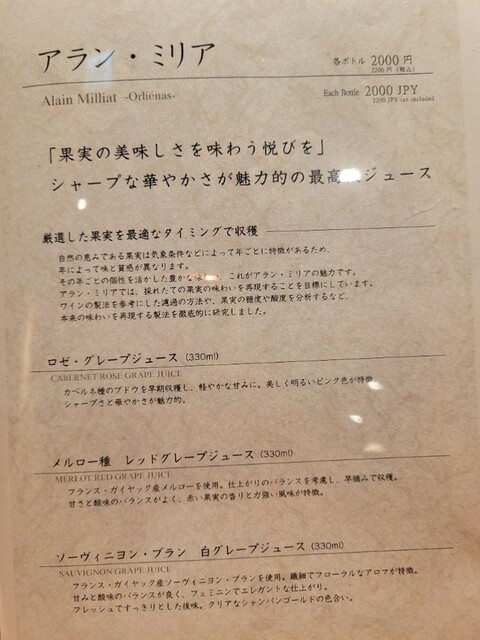 アラン・ミリア
各ボトル 2000 円
2200 円 (税込)
Alain Milliat -Orliénas-
Each Bottle 2000 JPY
2200 JPY tax included
「果実の美味しさを味わう悦びを」
シャープな華やかさが魅力的の最高ジュース
厳選した果実を最適なタイミングで収穫
自然の恵みである果実は気象条件などによって年ごとに特徴があるため、
年によって味と質感が異なります。
その年ごとの個性を活かした豊かな味 、これがアラン・ミリアの魅力です。
アラン・ミリアでは、採れたての果実の味わいを再現することを目標にしています。
ワインの製法を参考にした濾過の方法や、果実の糖度や酸度を分析するなど、
本来の味わいを再現する製法を徹底的に研究しました。
ロゼ・グレープジュース (330ml)
CABERNET ROSE GRAPE JUICE
カベルネ種のブドウを早期収穫し、軽やかな甘みに。美しく明るいピンク色が特徴
シャープさと華やかさが魅力的。
メルロー種 レッドグレープジュース (330ml)
MERLOT RED GRAPE JUICE
フランス・ガイヤック産メルローを使用。仕上がりのバランスを考慮し、早摘みで収穫。
甘さと酸味のバランスがよく、赤い果実の香りと力強い風味が特徴。
ソーヴィニヨン・ブラン 白グレープジュース (330ml)
SAUVIGNON GRAPE JUICE
フランス・ガイヤック産ソーヴィニヨン・ブランを使用。繊細でフローラルなアロマが特徴。
甘みと酸味のバランスが良く、フェミニンでエレガントな仕上がり。
フレッシュですっきりとした後味。クリアなシャンパンゴールドの色合い。